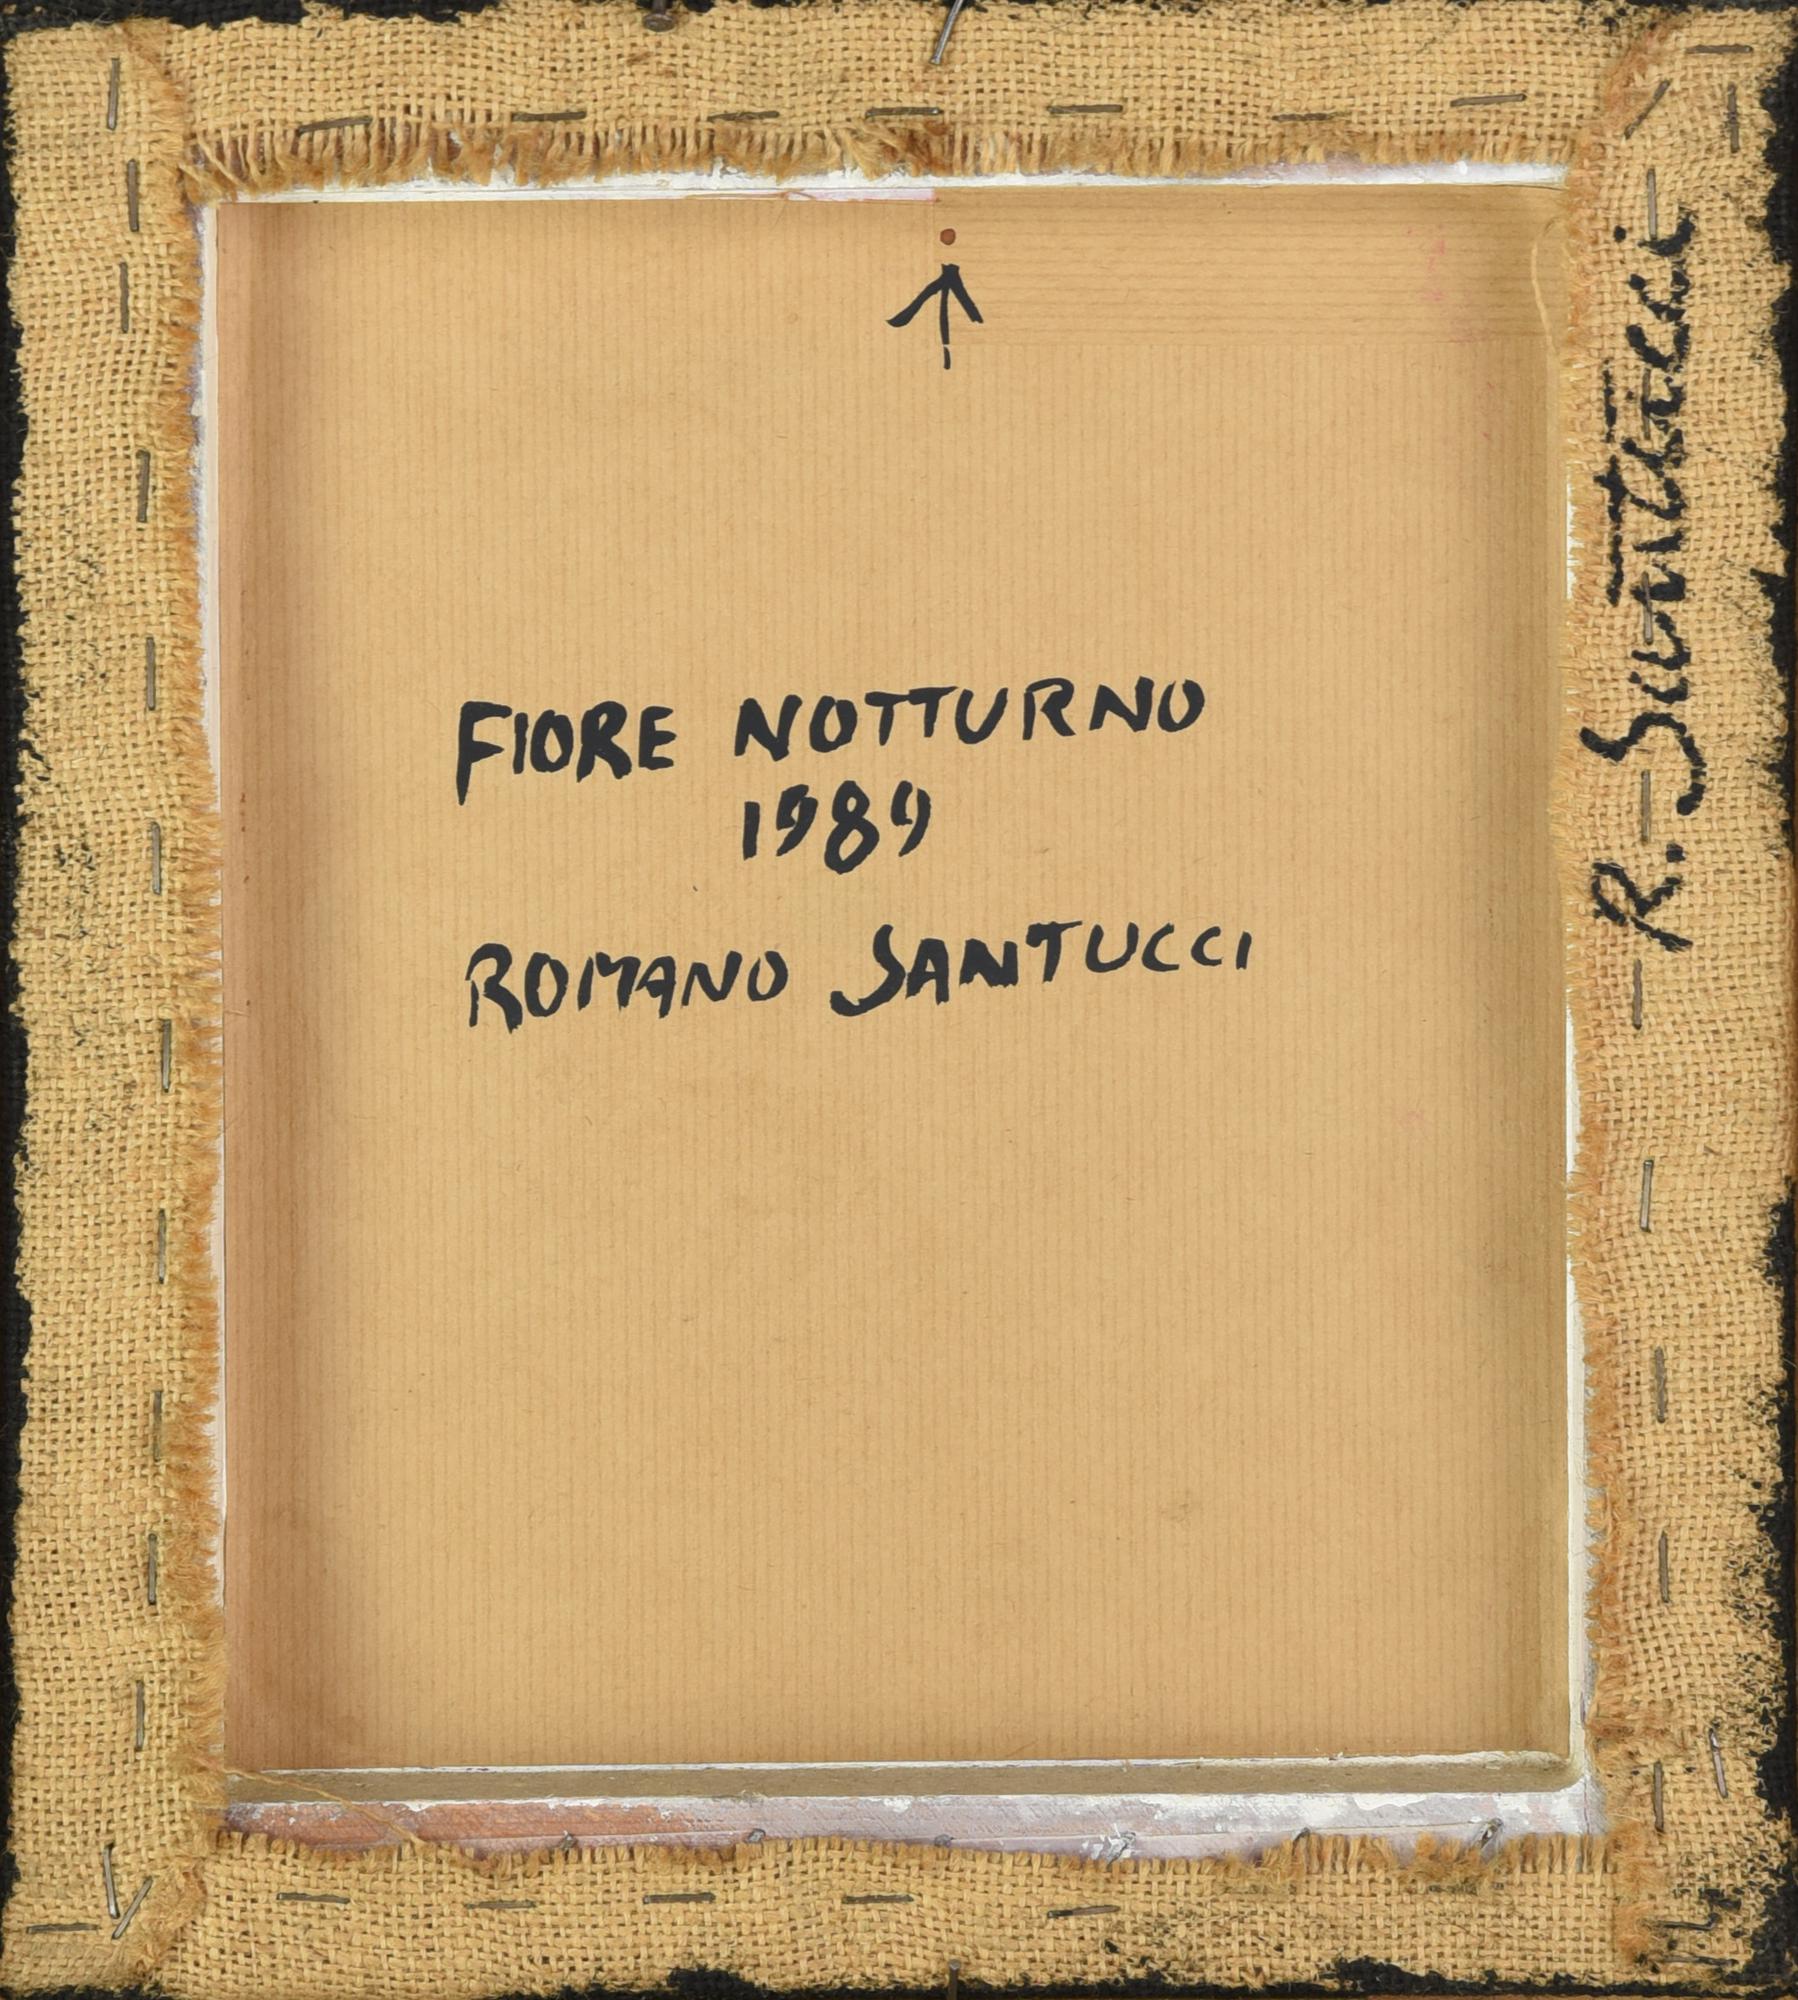 FIORE NOTTURNO
1989
ROMANO SANTUCCI
R. Santucci